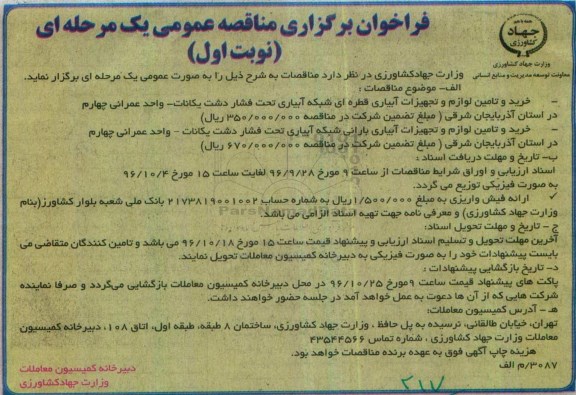 فراخوان برگزاری مناقصه عمومی یک مرحله ای
(نوبت اول)
جهاد
کشاورزی
وزارت جهاد کشاورزی
معاونت توسعه مدیریت و منابع انسانی
وزارت جهادکشاورزی در نظر دارد مناقصات به شرح ذیل را به صورت عمومی یک مرحله ای برگزار نماید.
الف- موضوع مناقصات :
- خرید و تامین لوازم و تجهیزات آبیاری قطره ای شبکه آبیاری تحت فشار دشت یکانات- واحد عمرانی چهارم
در استان آذربایجان شرقی ( مبلغ تضمین شرکت در مناقصه ۳۵۰/۰۰۰/۰۰۰ ریال)
- خرید و تامین لوازم و تجهیزات آبیاری بارانی شبکه آبیاری تحت فشار دشت یکانات - واحد عمرانی چهارم
در استان آذربایجان شرقی ( مبلغ تضمین شرکت در مناقصه ۶۷۰/۰۰۰/۰۰۰ ریال)
ب- تاریخ و مهلت دریافت اسناد :
اسناد ارزیابی و اوراق شرایط مناقصات از ساعت ۹ مورخ ۹۶/۹/۲۸ لغایت ساعت ۱۵ مورخ ۹۶/۱۰/۴
به صورت فیزیکی توزیع می گردد.
✓ ارائه فیش واریزی به مبلغ ۱/۵۰۰/۰۰۰ریال به شماره حساب ۲۱۷۳۸۱۹۰۰۱۰۰۲ بانک ملی شعبه بلوار کشاورز(بنام
وزارت جهاد کشاورزی) و معرفی نامه جهت تهیه اسناد الزامی می باشد.
ج - تاریخ و مهلت تحویل اسناد:
آخرین مهلت تحویل و تسلیم اسناد ارزیابی و پیشنهاد قیمت ساعت ۱۵ مورخ ۹۶/۱۰/۱۸ می باشد و تامین کنندگان متقاضی می
بایست پیشنهادات خود را به صورت فیزیکی به دبیرخانه کمیسیون معاملات تحویل نمایند.
د- تاریخ بازگشایی پیشنهادات :
پاکت های پیشنهاد قیمت ساعت ۹مورخ ۹۶/۱۰/۲۵ در محل دبیرخانه کمیسیون معاملات بازگشایی می‌گردد و صرفا نماینده
شرکت هایی که از آن ها دعوت به عمل خواهد آمد در جلسه حضور خواهند داشت.
هـ - آدرس کمیسیون معاملات:
تهران، خیابان طالقانی، نرسیده به پل حافظ ، وزارت جهاد کشاورزی، ساختمان ۸ طبقه، طبقه اول، اتاق ۱۰۸، دبیرخانه کمیسیون
معاملات وزارت جهاد کشاورزی ، شماره تماس ۴۳۵۴۴۵۶۶
هزینه چاپ آگهی فوق به عهده برنده مناقصات خواهد بود.
۳۰۸۷/م الف
دبیرخانه کمیسیون معاملات
وزارت جهادکشاورزی
۲۱۷